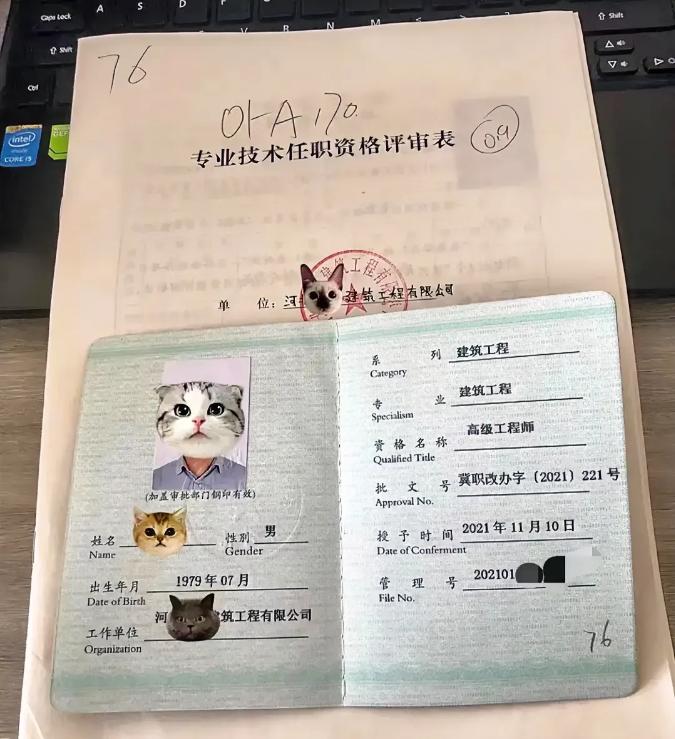 Caps Lock
A
S
D
⇧ Shift
Ctrl
B
N
M
⇧ Shift
intel
CORE i5
76
01-A170.
0.9
专业技术任职资格评审表
建筑工程有
单 位：河 建筑工程有限公司
(加盖审批部门钢印有效)
姓名
Name
性别 男
Gender
出生年月 1979年07月
Date of Birth
工作单位 河 筑工程有限公司
Organization
系 列 建筑工程
Category
专 业 建筑工程
Specialism
资格名称 高级工程师
Qualified Title
批 文 号 冀职改办字〔2021〕221号
Approval No.
授予时间 2021年11月10日
Date of Conferment
管 理 号 202101
File No.
76